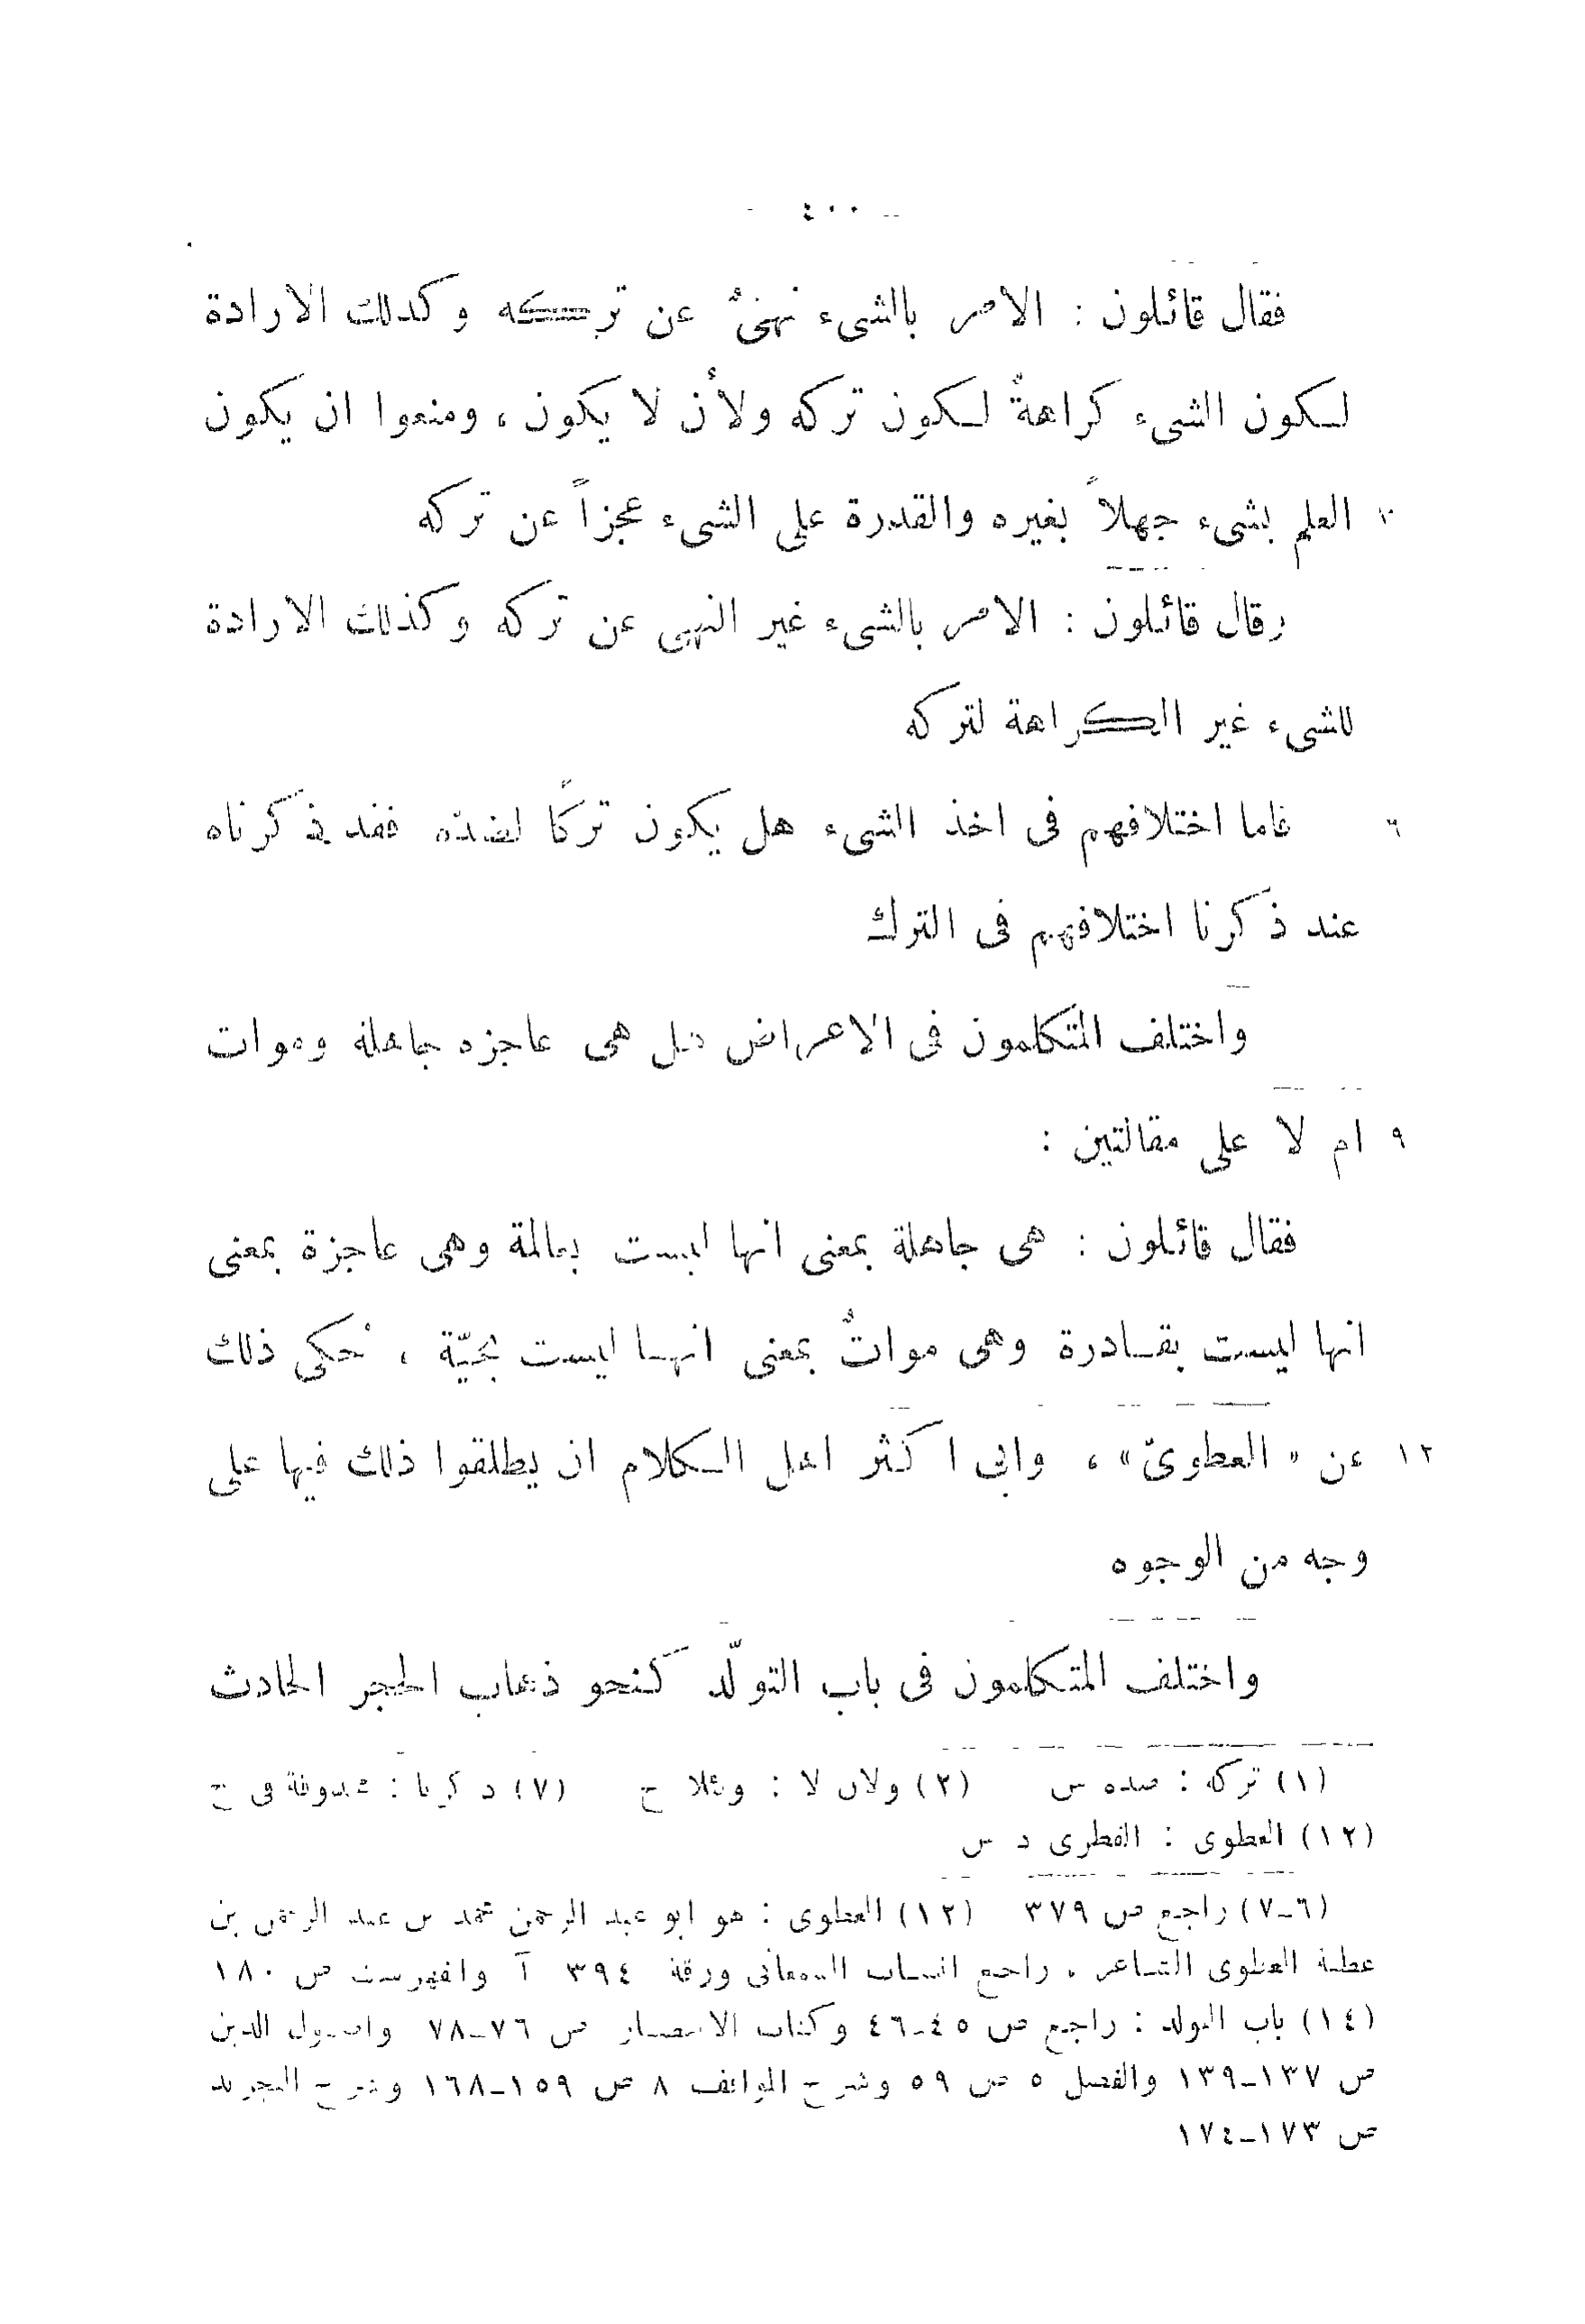 - ٤٠٠ -
فقال قائلون : الامر بالشىء نهىٌ عن تركه وكذلك الارادة
لكون الشىء كراهةٌ لكون تركه ولأن لا يكون ، ومنعوا ان يكون
٣ العلم بشىء جهلاً بغيره والقدرة على الشىء عجزاً عن تركه
وقال قائلون : الامر بالشىء غير النهى عن تركه وكذلك الارادة
للشىء غير الكراهة لتركه
٦ فاما اختلافهم فى اخذ الشىء هل يكون تركًا لضدّه فقد ذكرناه
عند ذكرنا اختلافهم فى الترك
واختلف المتكلمون فى الاعراض هل هى عاجزة جاهلة وموات
٩ ام لا على مقالتين :
فقال قائلون : هى جاهلة بمعنى انها ليست بعالمة وهى عاجزة بمعنى
انها ليست بقادرة وهى مواتٌ بمعنى انها ليست بحيّة ، حُكى ذلك
١٢ عن « العطوىّ » ، وابى اكثر اهل الكلام ان يطلقوا ذلك فيها على
وجه من الوجوه
واختلف المتكلمون فى باب التولّد كنحو ذهاب الحجر الحادث
(١) تركه : ضده س (٢) ولان لا : ولئلا ح (٧) ذكرنا : محذوفة فى ح
(١٢) العطوى : الفطرى د س
(٦-٧) راجع ص ٣٧٩ (١٢) العطوى : هو ابو عبد الرحمن محمد بن عبد الرحمن بن
عطية العطوى الشاعر ، راجع انساب السمعانى ورقة ٣٩٤ آ والفهرست ص ١٨٠
(١٤) باب التولد : راجع ص ٤٥-٤٦ وكتاب الانتصار ص ٧٦-٧٨ واصول الدين
ص ١٣٧-١٣٩ والفصل ٥ ص ٥٩ وشرح المواقف ٨ ص ١٥٩-١٦٨ وشرح التجريد
ص ١٧٣-١٧٤